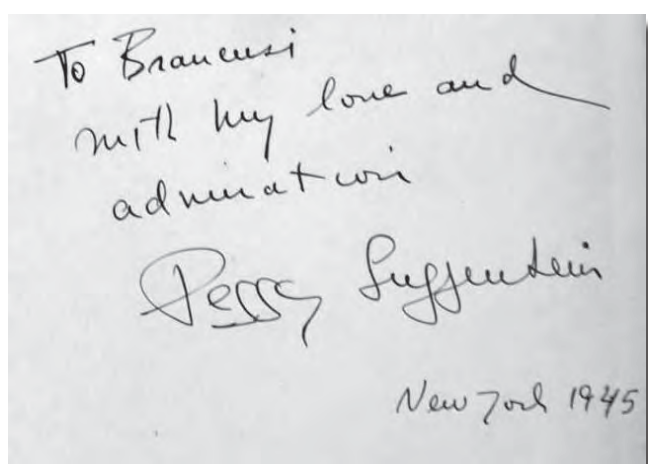 To Brancusi
with my love and
admiration
Peggy Guggenheim
New York 1945